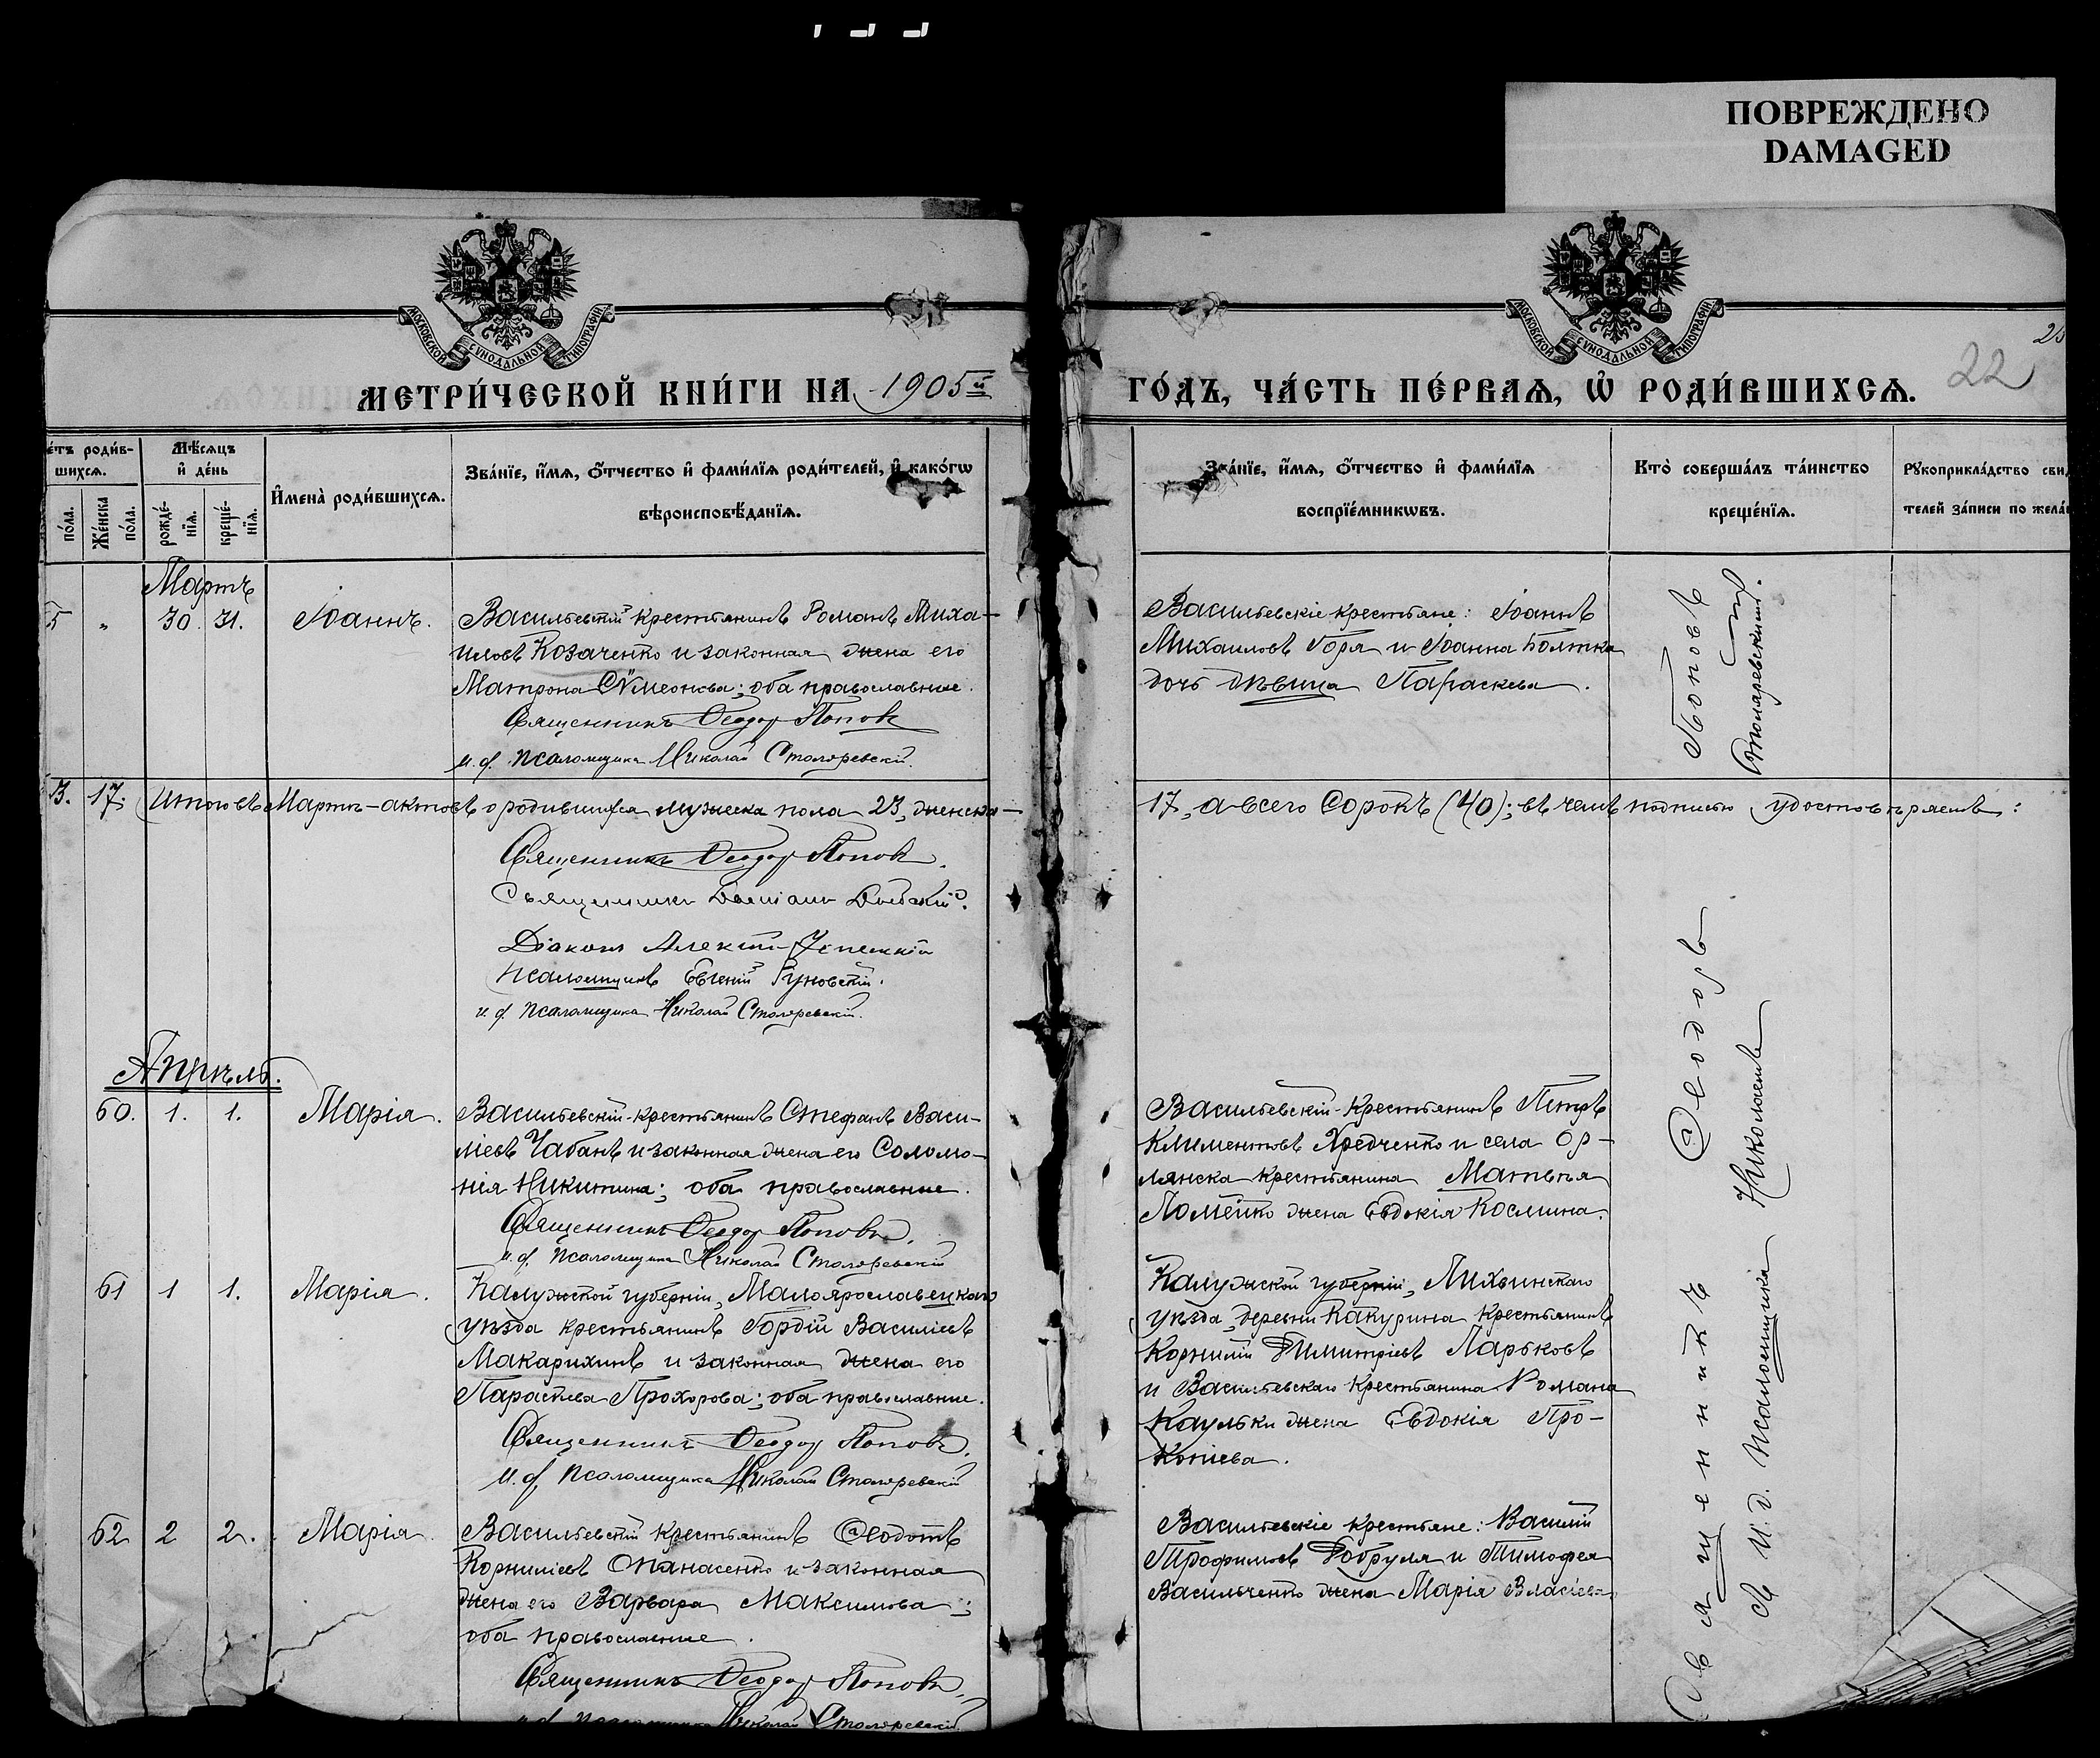 ПОВРЕЖДЕНО
DAMAGED
МОСКОВСКОЙ СѴНОДАЛЬНОЙ ТИПОГРАФІИ
МОСКОВСКОЙ СѴНОДАЛЬНОЙ ТИПОГРАФІИ
22
МЕТРИ́ЧЕСКОЙ КНИ́ГИ НА 1905й
ГО́ДЪ, ЧА́СТЬ ПЕ́РВАѦ, Ѡ҆ РОДИ́ВШИХСѦ.
е́тъ роди́в-
шихсѧ.
по́ла.
Же́нска
по́ла.
Мѣ́сѧцъ
и҆ де́нь
рожде́-
нїѧ.
креще́-
нїѧ.
И҆мена̀ роди́вшихсѧ.
Зва́нїе, и҆́мѧ, ѻ҆́тчество и҆ фами́лїѧ роди́телей, и҆ како́гѡ
вѣроисповѣ́данїѧ.
Зва́нїе, и҆́мѧ, ѻ҆́тчество и҆ фами́лїѧ
воспрїе́мникѡвъ.
Кто̀ соверша́лъ та́инство
креще́нїѧ.
Рꙋкоприкла́дство сви
телей за́писи по жела́
Мартъ
5 " 30. 31. Іоаннъ.
Васильевскій крестьянинъ Романъ Миха-
иловъ Козаченко и законная жена его
Матрона Сѵмеонова; оба православные.
Священникъ Ѳеодор Поповъ
и. д. псаломщика Николай Столяревскій.
Васильевскіе крестьяне: Іоаннъ
Михаиловъ Горя и Іоанна Болтка
дочь дѣвица Параскева.
3. 17. Итого въ Мартѣ-актовъ о родившихся мужеска пола 23, женска-
17, а всего Сорокъ (40); въ чемъ подписью удостовѣряемъ:
Священникъ Ѳеодор Поповъ.
Священникъ Даміанъ
Діаконъ Алексій Успенскій
Псаломщикъ Евгеній Гуновскій.
и. д. псаломщика Николай Столяревскій.
Апрѣль.
60. 1. 1. Марія.
Васильевскій-крестьянинъ Стефанъ Васи-
ліевъ Чабанъ и законная жена его Соломо-
нія Никитина; оба православные.
Священникъ Ѳеодор Поповъ.
и. д. псаломщика Николай Столяревскій
Васильевскій-крестьянинъ Петръ
Климентовъ Хредченко и села Ор-
лянска крестьянина Матѳѣя
Ломейко жена Евдокія Космина.
61 1 1. Марія.
Калужской губерніи, Малоярославецкаго
уѣзда крестьянинъ Гордій Василіевъ
Макарихинъ и законная жена его
Параскева Прохорова; оба православные.
Священникъ Ѳеодор Поповъ.
И. д. псаломщика Николай Столяревскій
Калужской губерніи, Лихвинскаго
уѣзда, деревни Какурина крестьянинъ
Корнилій Димитріевъ Ларьковъ
и Васильевскаго крестьянина Романа
Каульки жена Евдокія Про-
копіева.
62 2 2. Марія.
Васильевскій крестьянинъ Ѳеодотъ
Корниліевъ Опанасенко и законная
жена его Варвара Максимова;
оба православные.
Священникъ Ѳеодор Поповъ.
и. д. псаломщика Николай Столяревскій
Васильевскіе крестьяне: Василій
Трофимовъ Добруля и Тимофея
Васильченко жена Марія Власіева.
Священникъ Ѳеодоръ Поповъ
съ И. д. псаломщика Николаемъ Столяревскимъ.